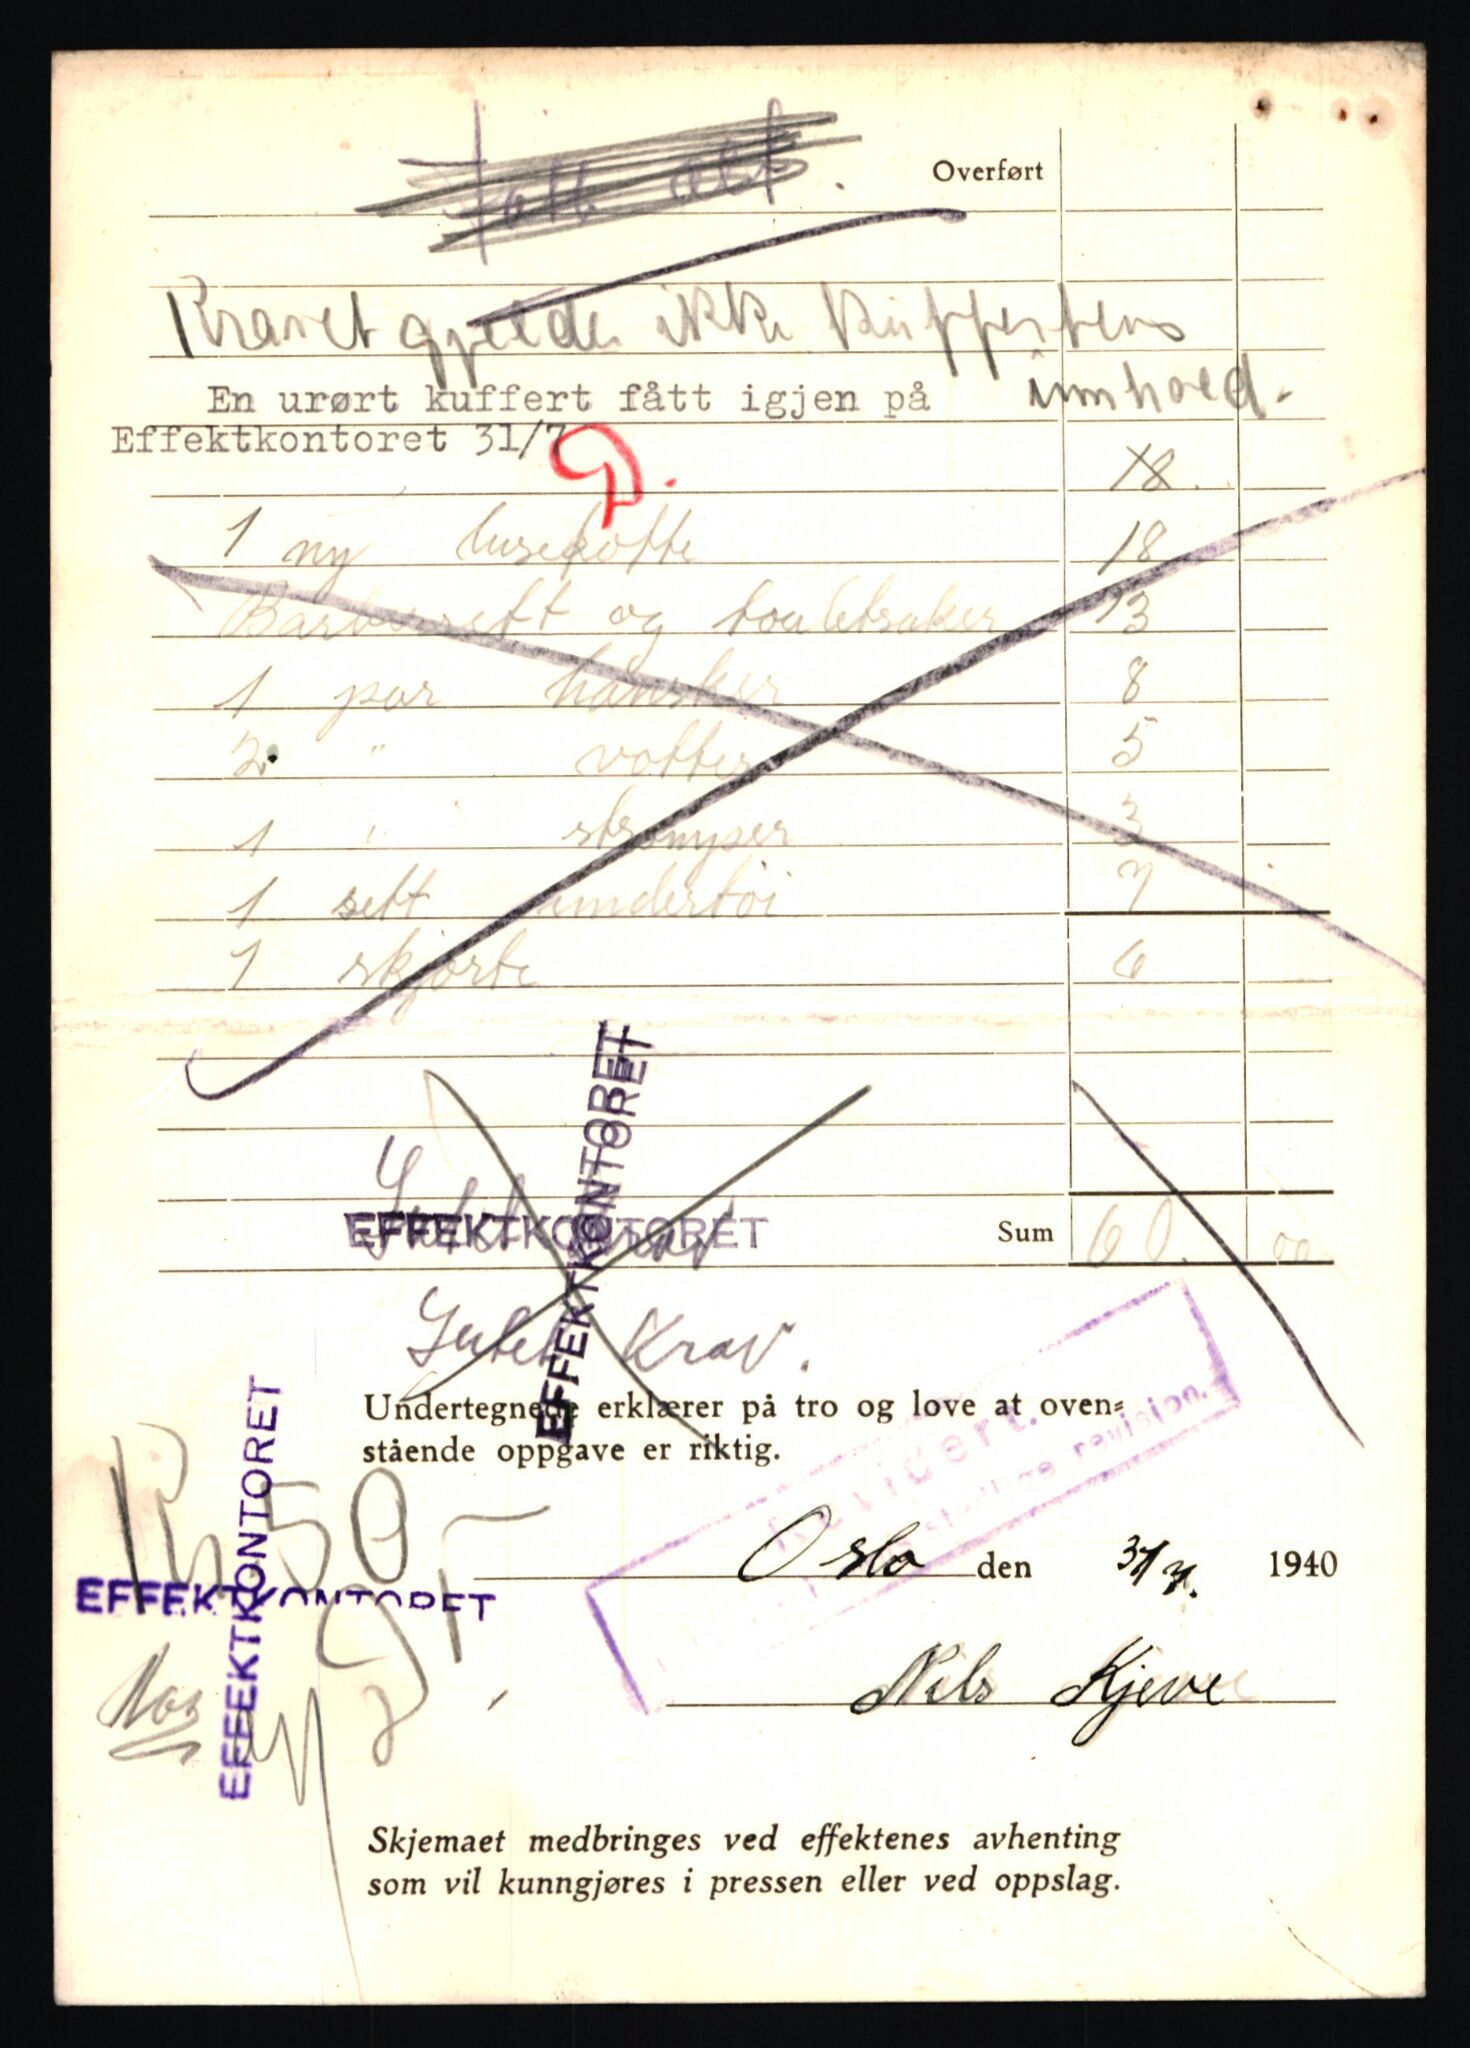 Fått alt.
Overført
Kravet gjelder ikke kuffertens
innhold.
En urørt kuffert fått igjen på
Effektkontoret 31/7
18.
1 ny lusekofte 18
Barbersett og toalettsaker 13
1 par hansker 8
2 " votter 5
1 " strømper 3
1 sett undertøi 7
1 skjorte 6
EFFEKTKONTORET
EFFEKTKONTORET
Sum 60. 00
Intet Krav.
Undertegnede erklærer på tro og love at oven-
stående oppgave er riktig.
Revidert.
revisjon.
EFFEKTKONTORET
Kr 50
Oslo den 31/7. 1940
EFFEKTKONTORET
Nils Kjeve
Skjemaet medbringes ved effektenes avhenting
som vil kunngjøres i pressen eller ved oppslag.